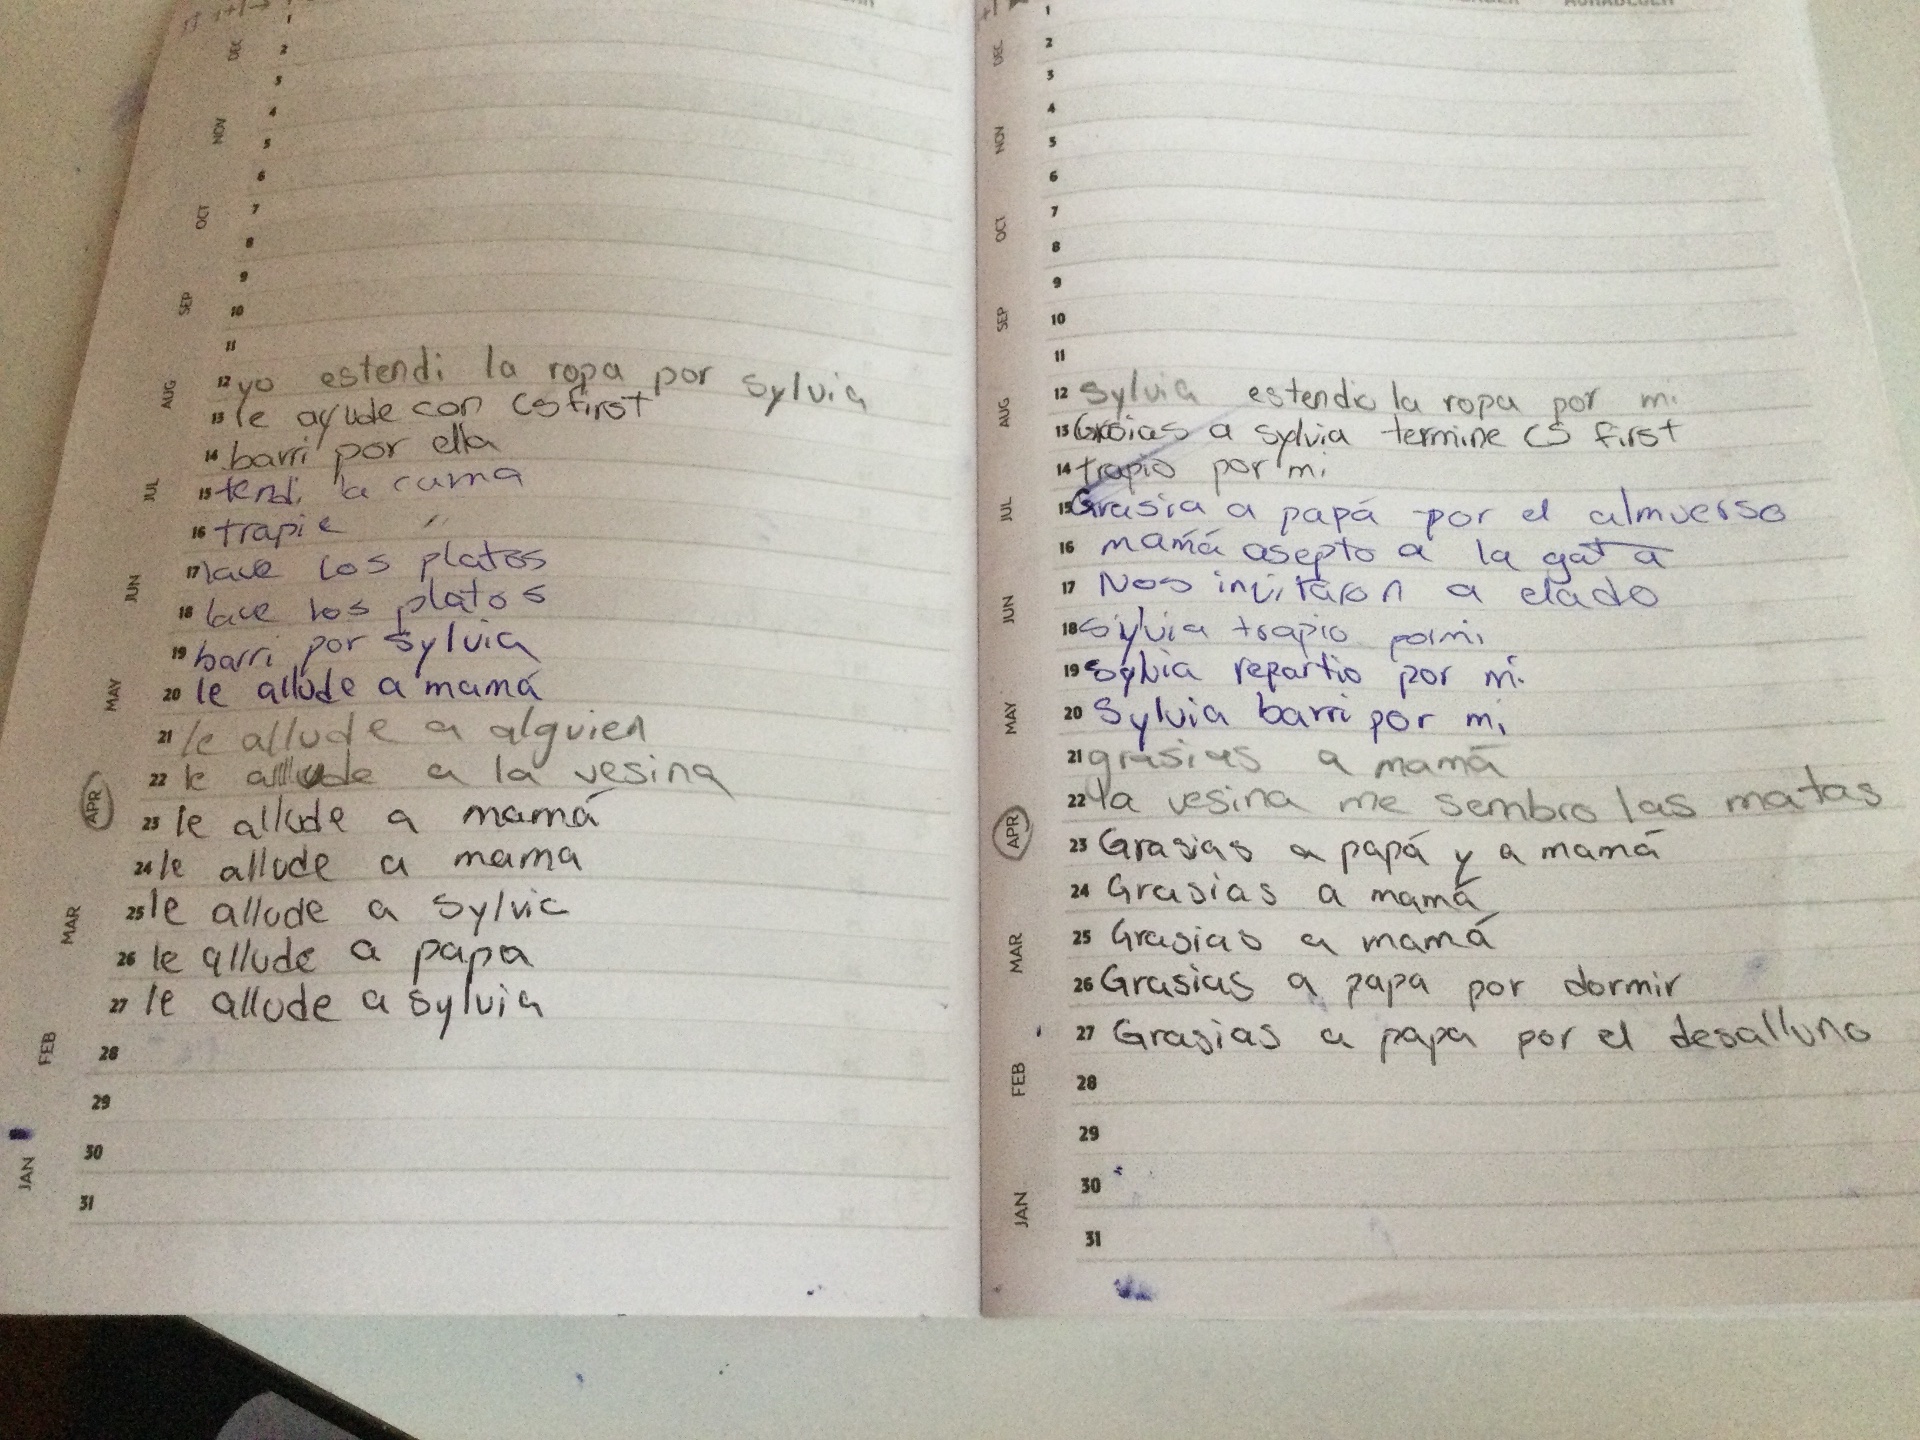 1
DEC 2
3
4
NOV 5
6
OCT 7
8
9
SEP 10
11
AUG 12 yo estendi la ropa por sylvia
13 le ayude con CS first
14 barri por ella
JUL 15 tendi la cama
16 trapie
17 lave los platos
JUN 18 lave los platos
19 barri por sylvia
MAY 20 le allude a mamá
21 le allude a alguien
22 le allude a la vesina
APR 23 le allude a mamá
24 le allude a mama
MAR 25 le allude a sylvia
26 le allude a papa
27 le allude a sylvia
FEB 28
29
30
JAN 31
1
DEC 2
3
4
NOV 5
6
7
OCT 8
9
SEP 10
11
AUG 12 Sylvia estendio la ropa por mi
13 Grasias a sylvia termine CS first
14 trapio por mi
JUL 15 Grasia a papá por el almuerso
16 mamá asepto a la gata
JUN 17 Nos invitaron a elado
18 Sylvia trapio por mi
19 Sylvia repartio por mi
MAY 20 Sylvia barri por mi
21 grasias a mamá
22 la vesina me sembro las matas
APR 23 Grasias a papá y a mamá
24 Grasias a mamá
MAR 25 Grasias a mamá
26 Grasias a papa por dormir
27 Grasias a papa por el desalluno
FEB 28
29
30
JAN 31